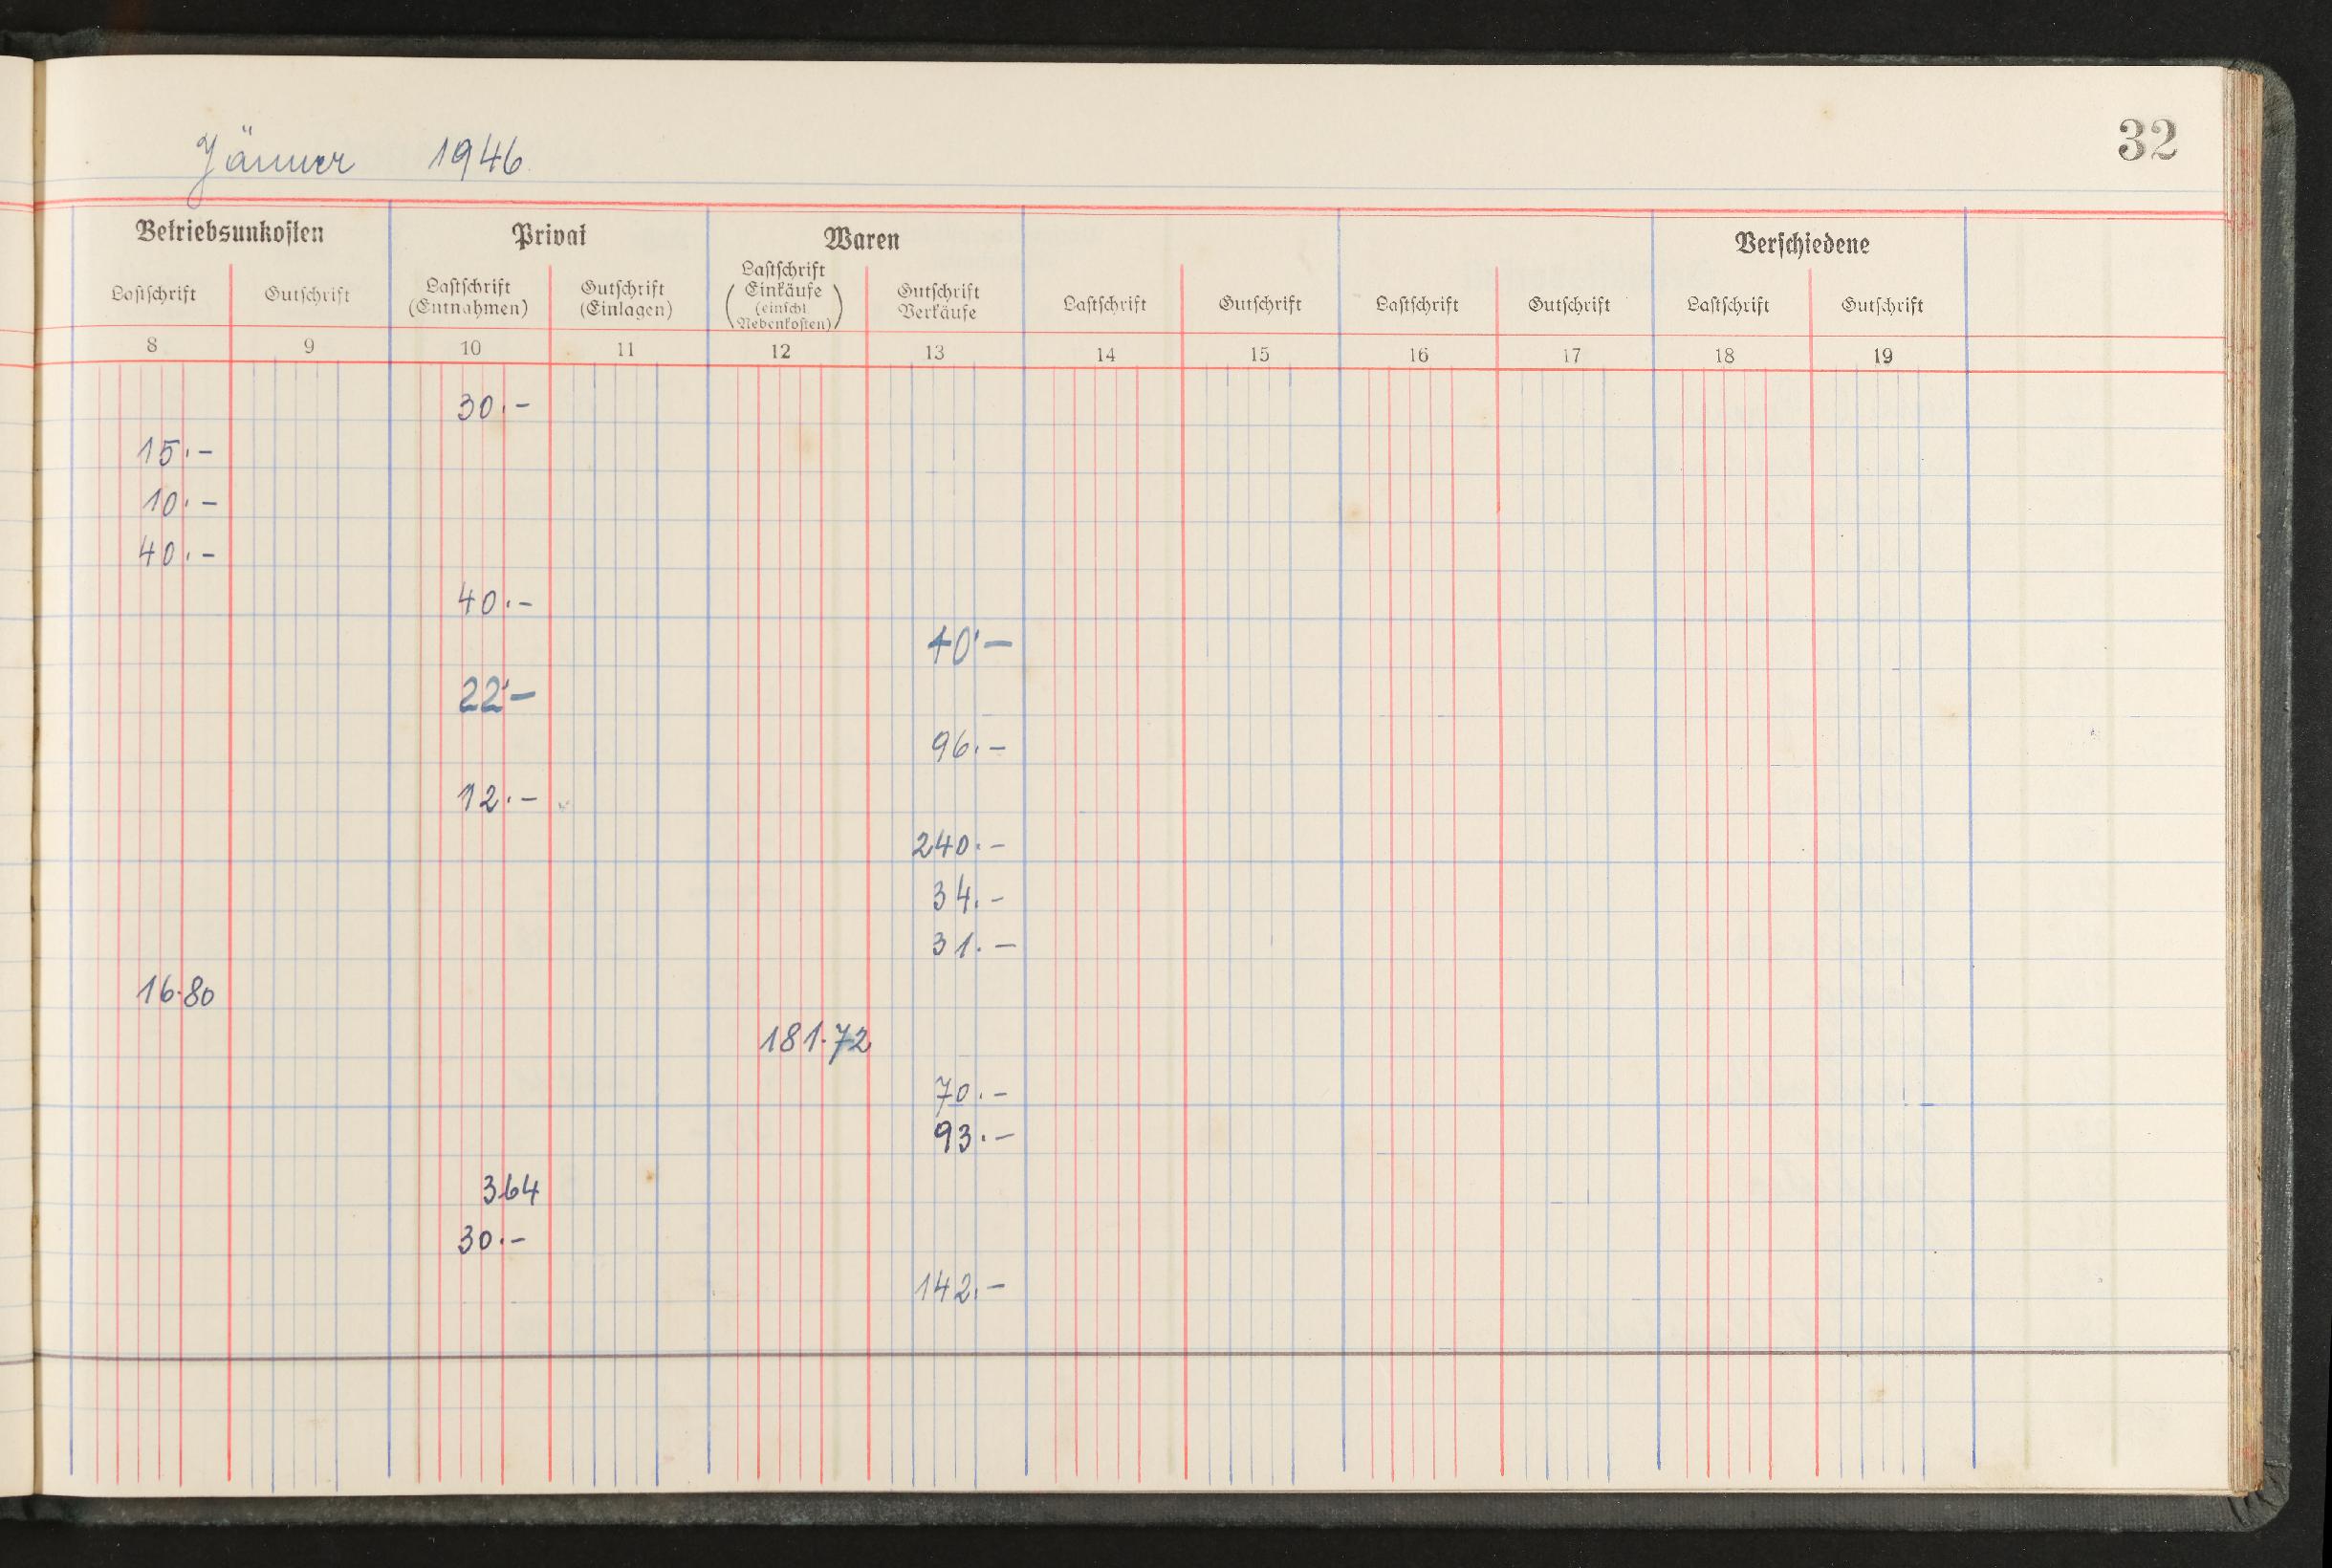 Jänner 1946
32
Betriebsunkosten Privat Waren Verschiedene
Lastschrift Gutschrift Lastschrift (Entnahmen) Gutschrift (Einlagen) Lastschrift Einkäufe (einschl. Nebenkosten) Gutschrift Verkäufe Lastschrift Gutschrift Lastschrift Gutschrift Lastschrift Gutschrift
8 9 10 11 12 13 14 15 16 17 18 19
30.-
15.-
10.-
40.-
40.-
40'-
22'-
96.-
12.-
240.-
34.-
31.-
16.80
181.72
70.-
93.-
3.64
30.-
142.-